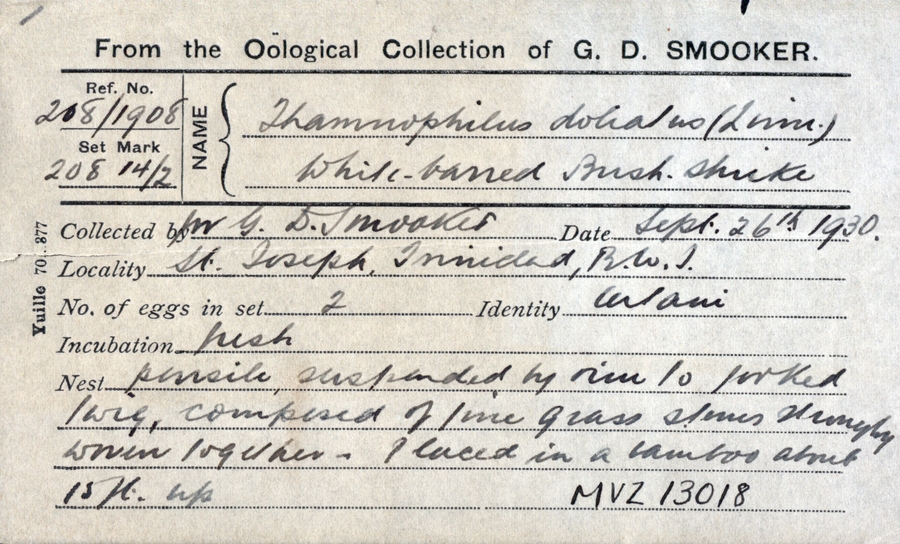 From the Oological Collection of G. D. SMOOKER.
Ref. No.
208/1908
Set Mark
208 14/2
NAME
Thamnophilus doliatus (Linn.)
White-barred Bush-shrike
Collected by Mr G. D. Smooker Date Sept. 26th 1930.
Locality St. Joseph, Trinidad, B.W.I.
No. of eggs in set 2 Identity certain
Incubation fresh
Nest pensile, suspended by rim to forked
twig, composed of fine grass stems strongly
woven together - Placed in a bamboo about
15 ft. up MVZ 13018
Yuille 70..877